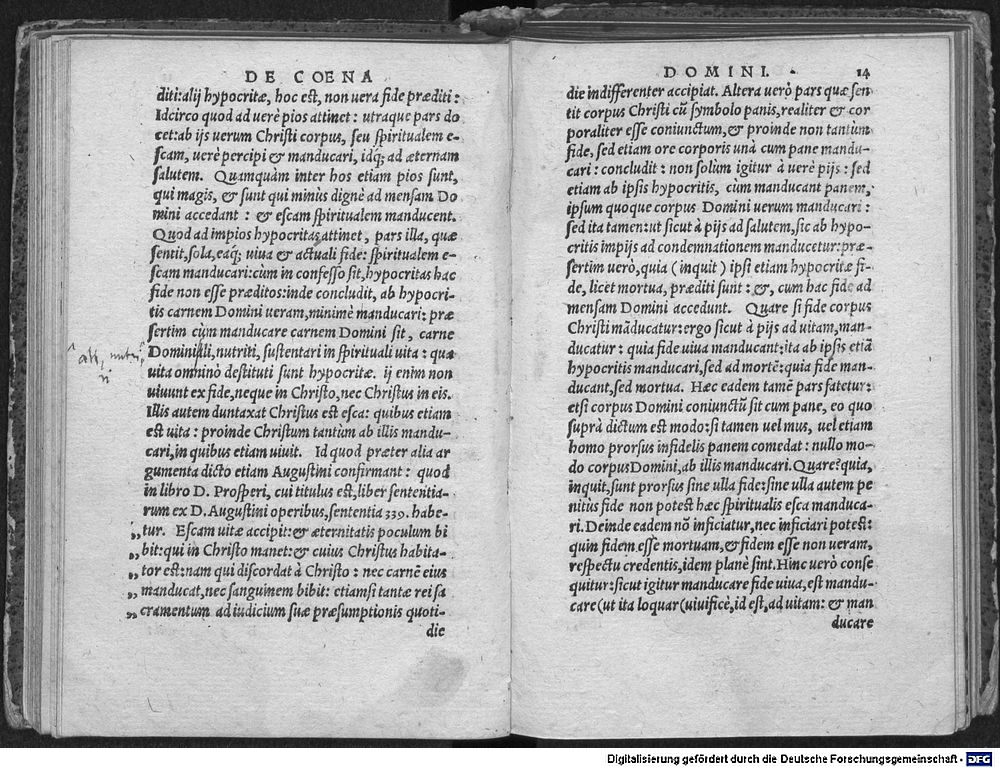 DE COENA
diti:alij hypocritæ, hoc est, non uera fide præditi:
Idcirco quod ad uerè pios attinet: utraque pars do
cet:ab ijs uerum Christi corpus, seu spiritualem e-
scam, uerè percipi & manducari, idq; ad æternam
salutem. Quamquàm inter hos etiam pios sunt,
qui magis, & sunt qui minùs dignè ad mensam Do
mini accedant: & escam spiritualem manducent.
Quod ad impios hypocritas attinet, pars illa, quæ
sentit, sola, eaq; uiua & actuali fide: spiritualem e-
scam manducari: cùm in confesso sit, hypocritas hac
fide non esse præditos: inde concludit, ab hypocri-
tis carnem Domini ueram, minimè manducari: præ
sertim cùm manducare carnem Domini sit, carne
Domini ali, nutriti, sustentari in spirituali uita: qua
uita omninò destituti sunt hypocritæ. ij enim non
uiuunt ex fide, neque in Christo, nec Christus in eis.
Illis autem duntaxat Christus est esca: quibus etiam
est uita: proinde Christum tantùm ab illis mandu-
cari, in quibus etiam uiuit. Id quod præter alia ar
gumenta dicto etiam Augustini confirmant: quod
in libro D. Prosperi, cui titulus est, liber sententia-
rum ex D. Augustini operibus, sententia 339. habe-
„tur. Escam uitæ accipit: & æternitatis poculum bi
„bit: qui in Christo manet: & cuius Christus habita-
„tor est: nam qui discordat à Christo: nec carnē eius
„manducat, nec sanguinem bibit: etiamsi tantæ rei sa
„cramentum ad iudicium suæ præsumptionis quoti-
die
ali, nutri
ri
DOMINI. 14
die indifferenter accipiat. Altera uerò pars quæ sen
tit corpus Christi cū symbolo panis, realiter & cor
poraliter esse coniunctum, & proinde non tantùm
fide, sed etiam ore corporis unà cum pane mandu-
cari: concludit: non solùm igitur à uerè pijs: sed
etiam ab ipsis hypocritis, cùm manducant panem,
ipsum quoque corpus Domini uerum manducari:
sed ita tamen: ut sicut à pijs ad salutem, sic ab hypo-
critis impijs ad condemnationem manducetur: præ-
sertim uerò, quia (inquit) ipsi etiam hypocritæ fi-
de, licet mortua, præditi sunt: &, cum hac fide ad
mensam Domini accedunt. Quare si fide corpus
Christi māducatur: ergo sicut à pijs ad uitam, man-
ducatur: quia fide uiua manducant: ita ab ipsis etiā
hypocritis manducari, sed ad mortē: quia fide man-
ducant, sed mortua. Hæc eadem tamē pars fatetur:
etsi corpus Domini coniunctū sit cum pane, eo quo
suprà dictum est modo: si tamen uel mus, uel etiam
homo prorsus infidelis panem comedat: nullo mo-
do corpus Domini, ab illis manducari. Quare? quia,
inquit, sunt prorsus sine ulla fide: sine ulla autem pe
nitùs fide non potest hæc spiritualis esca manduca-
ri. Deinde eadem nō inficiatur, nec inficiari potest:
quin fidem esse mortuam, & fidem esse non ueram,
respectu credentis, idem planè sint. Hinc uerò conse
quitur: sicut igitur manducare fide uiua, est mandu-
care (ut ita loquar (uiuificè, id est, ad uitam: & man
ducare
Digitalisierung gefördert durch die Deutsche Forschungsgemeinschaft - DFG